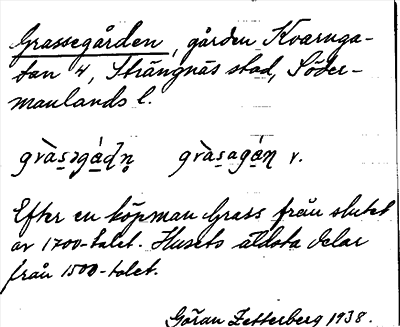 Grassegården, gården Kvarnga-
tan 4, Strängnäs stad, Söder-
manlands l.
gràsəgádn̥ gràsagán v.
Efter en köpman Grass från slutet
av 1700-talet. Husets äldsta delar
från 1500-talet.
Göran Zetterberg 1938.